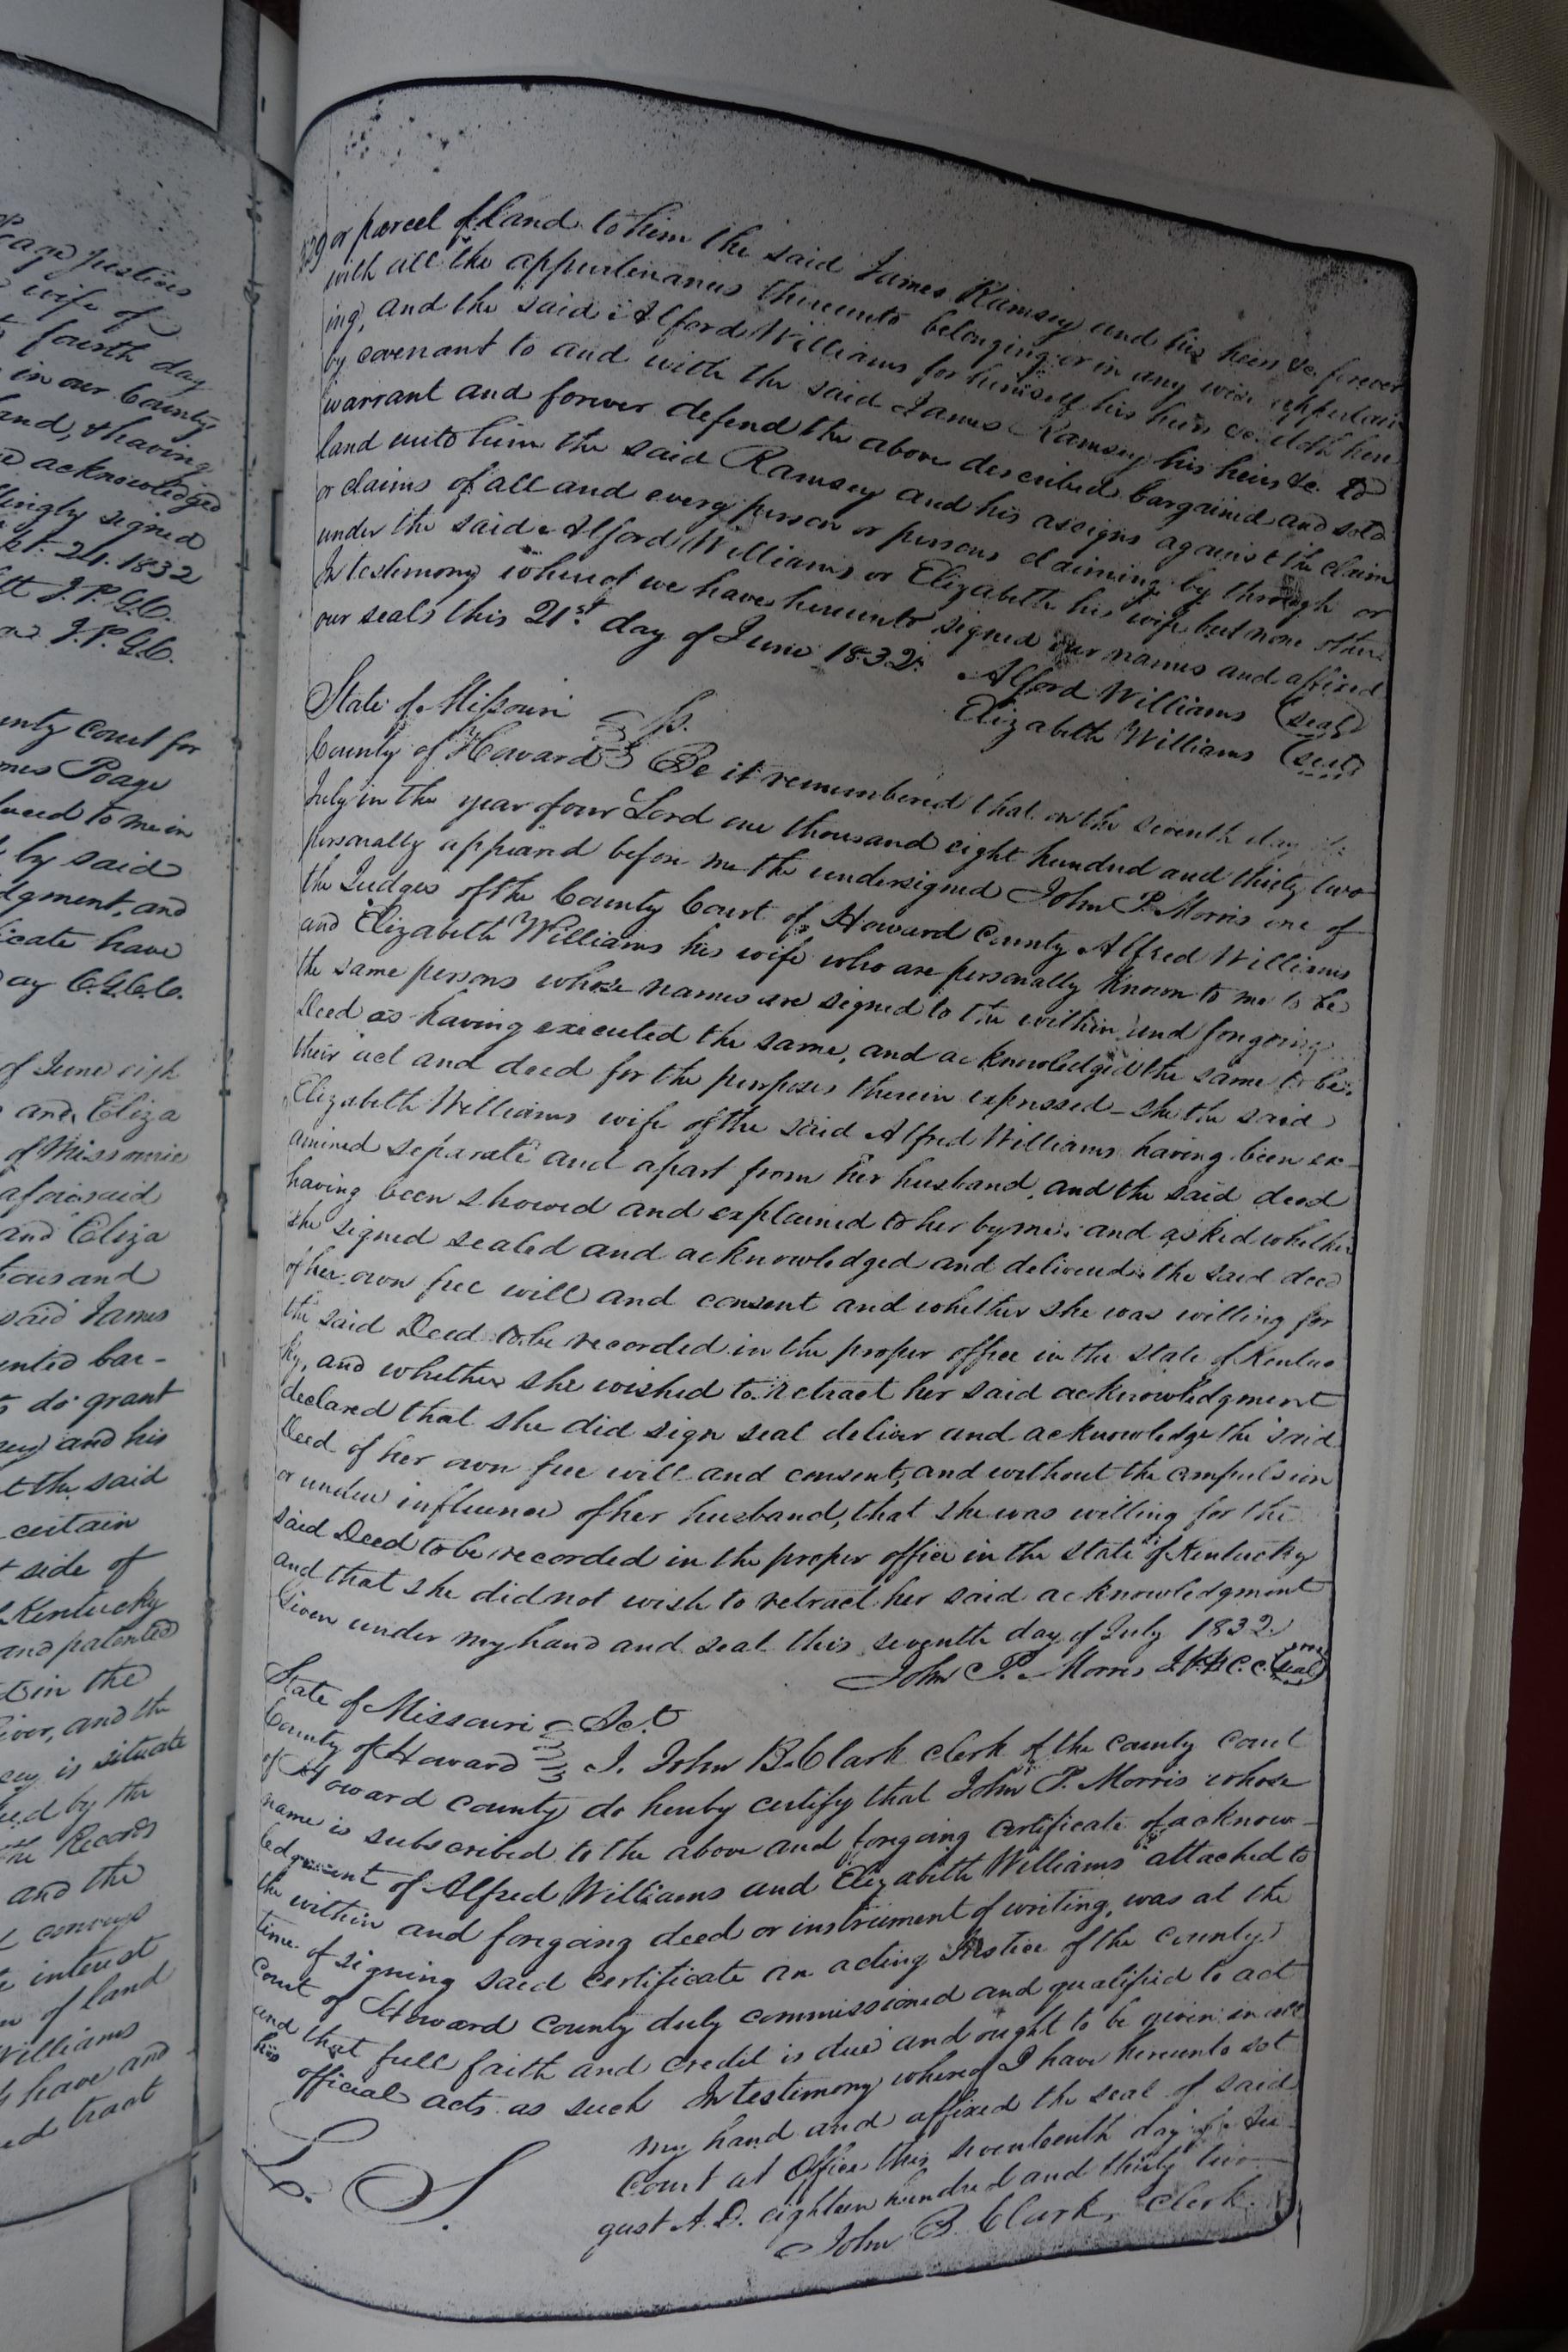 cage Justices
wife of
fourth day
in our County
and, & having
acknowledged
lingly signed
24. 1832
J. P. G. C.
J. P. G. C.
unty Court for
mes Poage
duced to me in
by said
dgment, and
icate have
ay C. G. C. C.
of June eigh
and Eliza
of Missourie
aforesaid
and Eliza
housand
said James
ented bar-
do grant
sey and his
t the said
certain
t side of
Kentucky
and patented
in the
iver, and the
sey is situate
ed by the
the Records
and the
conveys
interest
of land
Williams
have and
ed tract
429 or parcel of land to him the said James Ramsey and his heirs &c. forever
with all the appurtenances thereunto belonging or in any wise appertain
ing, and the said Alford Williams for himself his heirs &c. doth here
by covenant to and with the said James Ramsey his heirs &c. to
warrant and forever defend the above described bargained and sold
land unto him the said Ramsey and his assigns against the claim
or claims of all and every person or persons claiming by through or
under the said Alford Williams or Elizabeth his wife but none other
In testimony whereof we have hereunto signed our names and affixed
our seals this 21st day of June 1832.
Alford Williams (seal)
Elizabeth Williams (seal)
State of Missouri
County of Howard Ss. Be it remembered that on the seventh day
July in the year of our Lord one thousand eight hundred and thirty two
personally appeared before me the undersigned John P. Morris one of
the Judges of the County Court of Howard County Alfred Williams
and Elizabeth Williams his wife who are personally known to me to be
the same persons whose names are signed to the within and foregoing
Deed as having executed the same, and acknowledged the same to be
their act and deed for the purposes therein expressed - she the said
Elizabeth Williams wife of the said Alfred Williams having been ex-
amined separate and apart from her husband, and the said deed
having been showed and explained to her by me, and asked whether
she signed sealed and acknowledged and delivered the said deed
of her own free will and consent and whether she was willing for
the said Deed to be recorded in the proper office in the state of Kentuc
ky, and whether she wished to retract her said acknowledgment
declared that she did sign seal deliver and acknowledge the said
Deed of her own free will and consent, and without the compulsion
or under influence of her husband, that she was willing for the
said Deed to be recorded in the proper office in the state of Kentucky
and that she did not wish to retract her said acknowledgment
Given under my hand and seal this seventh day of July 1832.
John P. Morris J. H. C. C. (seal)
State of Missouri
County of Howard Sc.t I. John B. Clark clerk of the county court
of Howard county do hereby certify that John P. Morris whose
name is subscribed to the above and foregoing certificate of acknow-
ledgment of Alfred Williams and Elizabeth Williams attached to
the within and foregoing deed or instrument of writing, was at the
time of signing said certificate an acting Justice of the county
court of Howard county duly commissioned and qualified to act
and that full faith and credit is due and ought to be given in all
his official acts as such In testimony whereof I have hereunto set
my hand and affixed the seal of said
Court at Office this seventeenth day of Au
gust A. D. eighteen hundred and thirty two
L. S.
John B. Clark, Clerk.